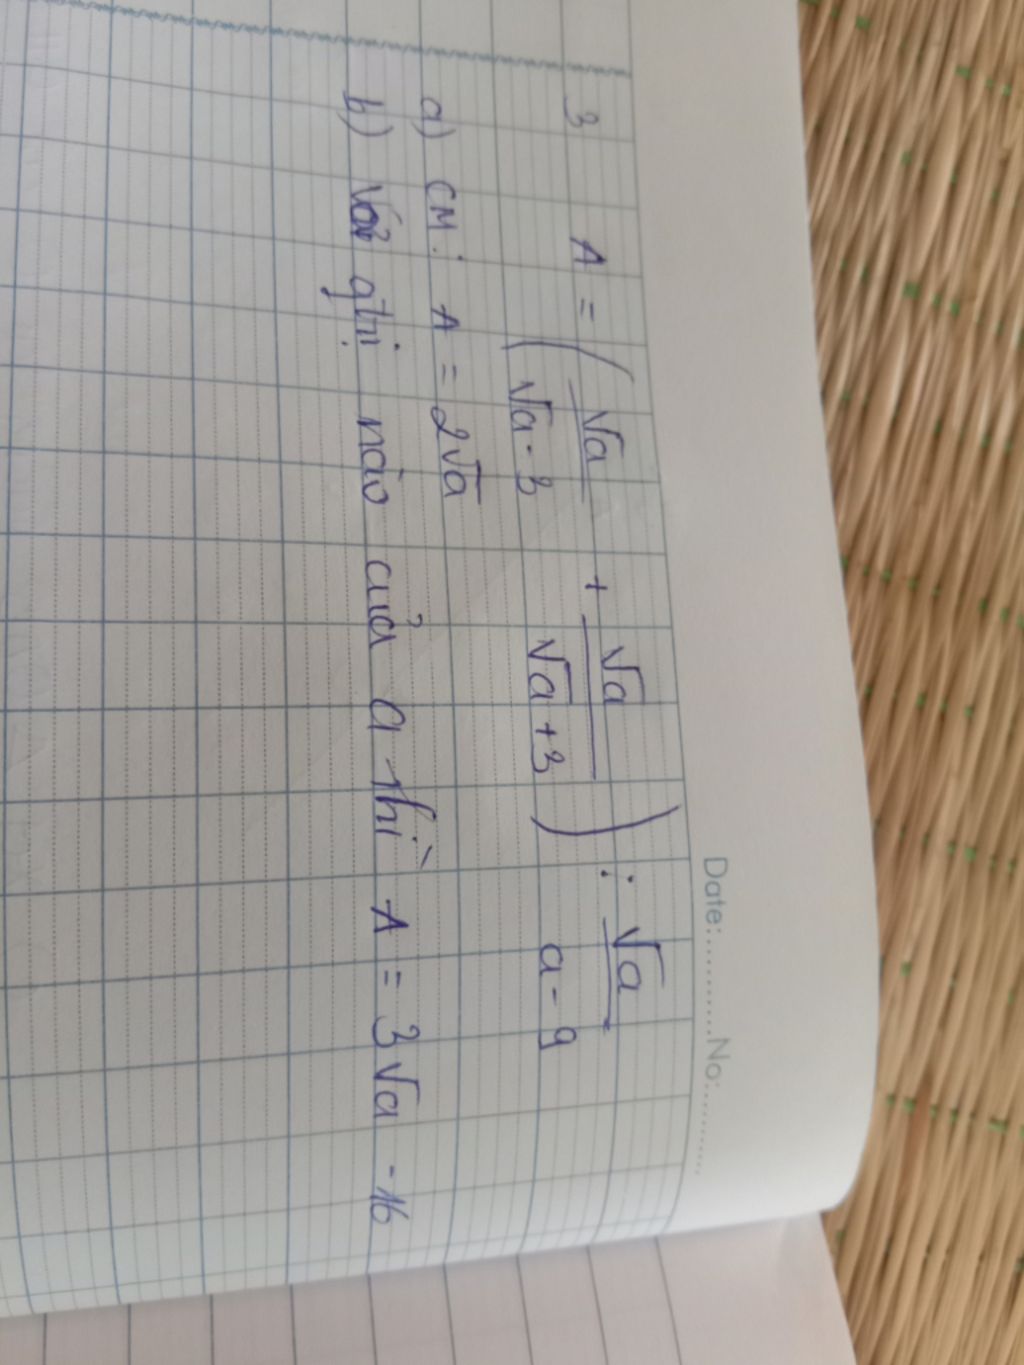 Date:..........No:..........
3 A = (√a/(√a - 3) + √a/(√a + 3)) : √a/(a - 9)
a) CM : A = 2√a
b) Với gtrị nào của a thì A = 3√a - 16